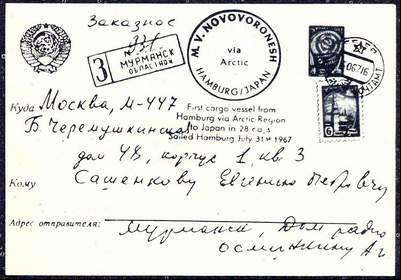 Заказное
З
№ 331
МУРМАНСК
ОБЛАСТНОЙ
M.V. NOVOVORONESH
via
Arctic
HAMBURG/JAPAN
First cargo vessel from
Hamburg via Arctic Region
to Japan in 28 days
Sailed Hamburg July 31st 1967
6
Куда Москва, М-447
Б. Черемушкинская
дом 48, корпус 1, кв 3
Кому
Сашенкову Евгению Петровичу
Адрес отправителя:
Мурманск, Дом радио
Осминкину